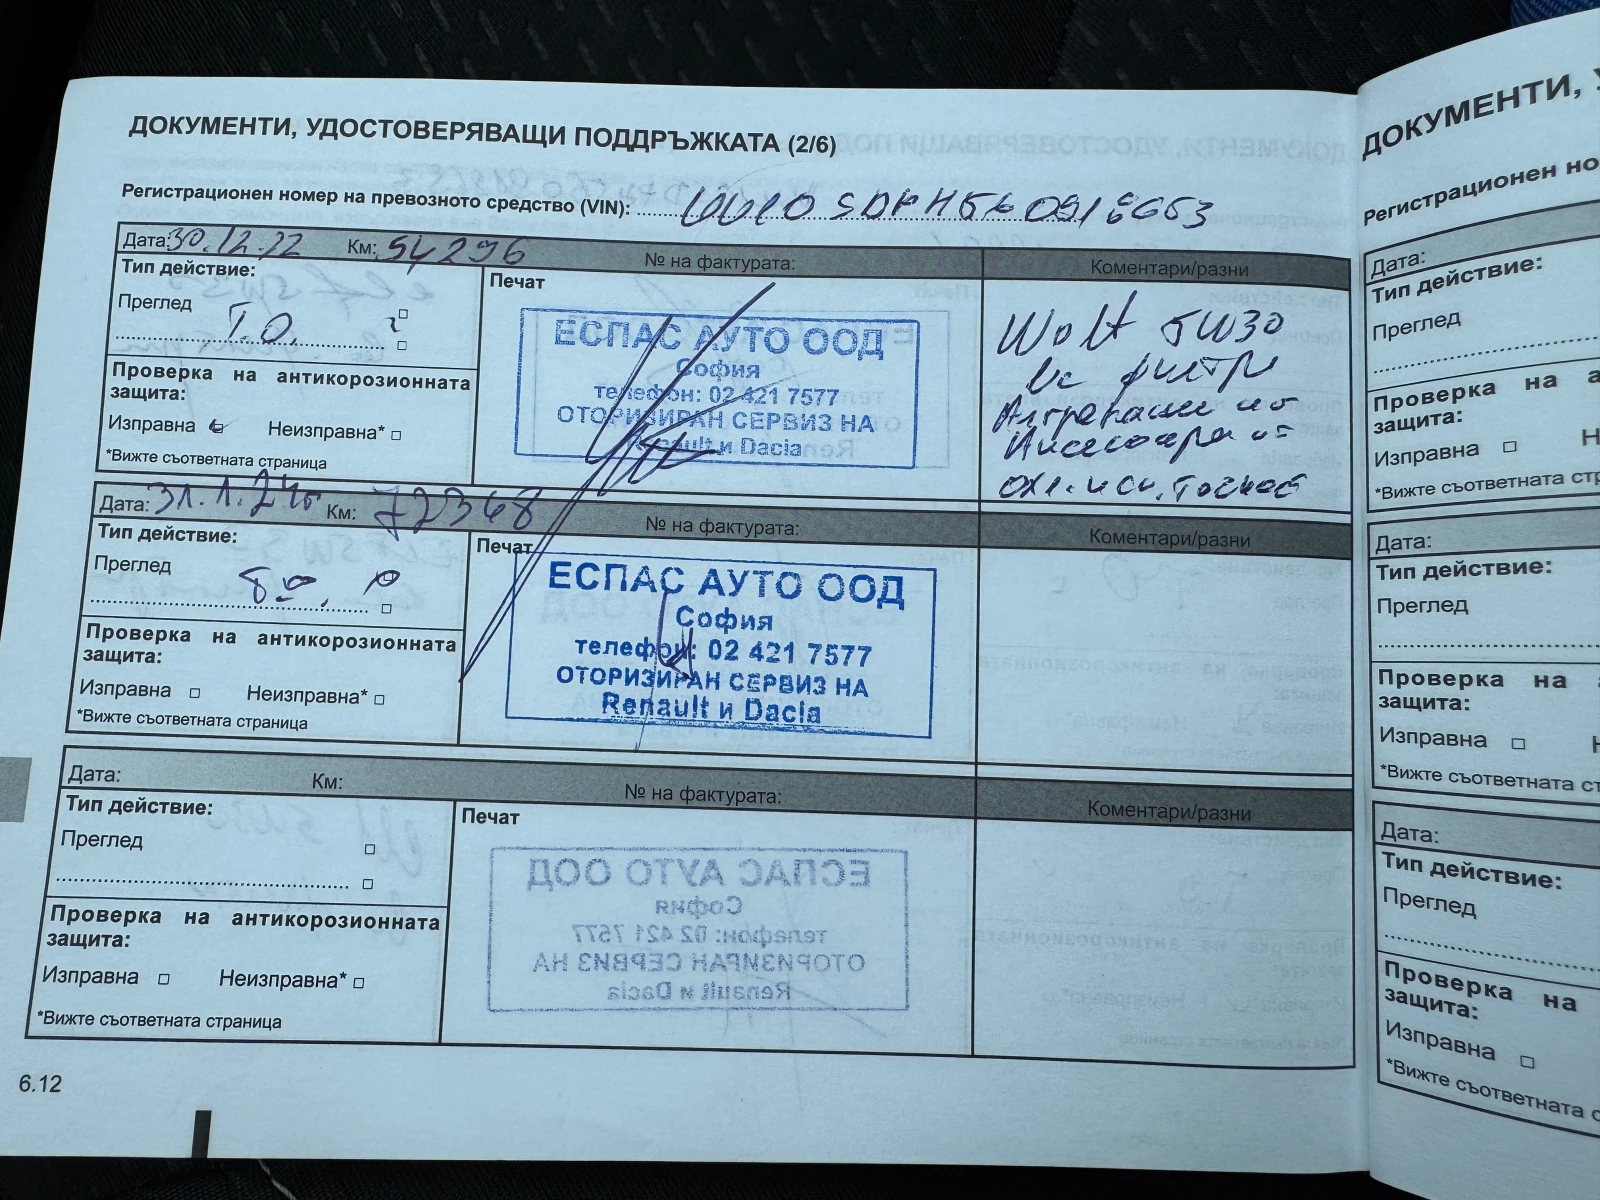 ДОКУМЕНТИ, УДОСТОВЕРЯВАЩИ ПОДДРЪЖКАТА (2/6)
Регистрационен номер на превозното средство (VIN):
Дата: 30.12.22 Км: 54296 № на фактурата: Коментари/разни
Тип действие:
Преглед
Т.О.
Проверка на антикорозионната
защита:
Изправна Неизправна*
*Вижте съответната страница
Печат
ЕСПАС АУТО ООД
София
телефон: 02 421 7577
ОТОРИЗИРАН СЕРВИЗ НА
Renault и Dacia
Wolt 5W30
Дата: 31.1.24г Км: 72368 № на фактурата: Коментари/разни
Тип действие:
Преглед
Проверка на антикорозионната
защита:
Изправна Неизправна*
*Вижте съответната страница
Печат
ЕСПАС АУТО ООД
София
телефон: 02 421 7577
ОТОРИЗИРАН СЕРВИЗ НА
Renault и Dacia
Дата: Км: № на фактурата: Коментари/разни
Тип действие:
Преглед
Проверка на антикорозионната
защита:
Изправна Неизправна*
*Вижте съответната страница
Печат
6.12
ДОКУМЕНТИ,
Регистрационен
Дата:
Тип действие:
Преглед
Проверка на
защита:
Изправна
*Вижте съответната
Дата:
Тип действие:
Преглед
Проверка на
защита:
Изправна
*Вижте съответната
Дата:
Тип действие:
Преглед
Проверка на
защита:
Изправна
*Вижте съответната